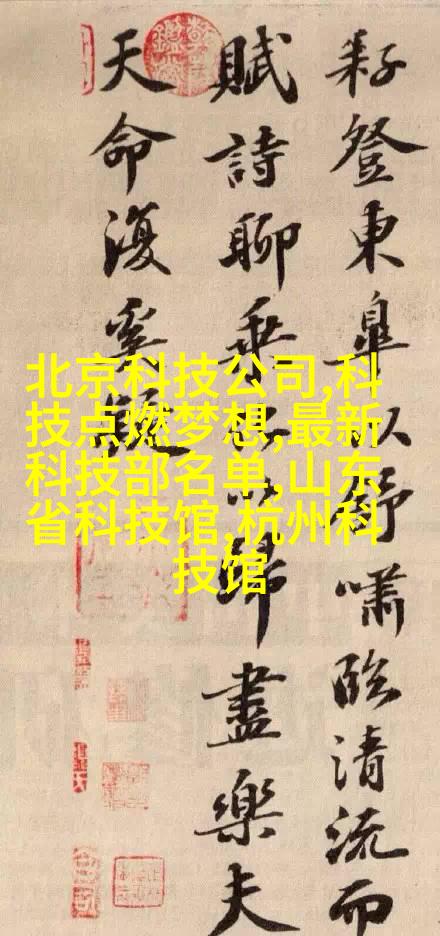 耔登東皐以舒嘯臨清流而
賦詩聊乘化以歸盡樂夫
天命復奚疑
北京科技公司,科
技点燃梦想,最新
科技部名单,山东
省科技馆,杭州科
技馆